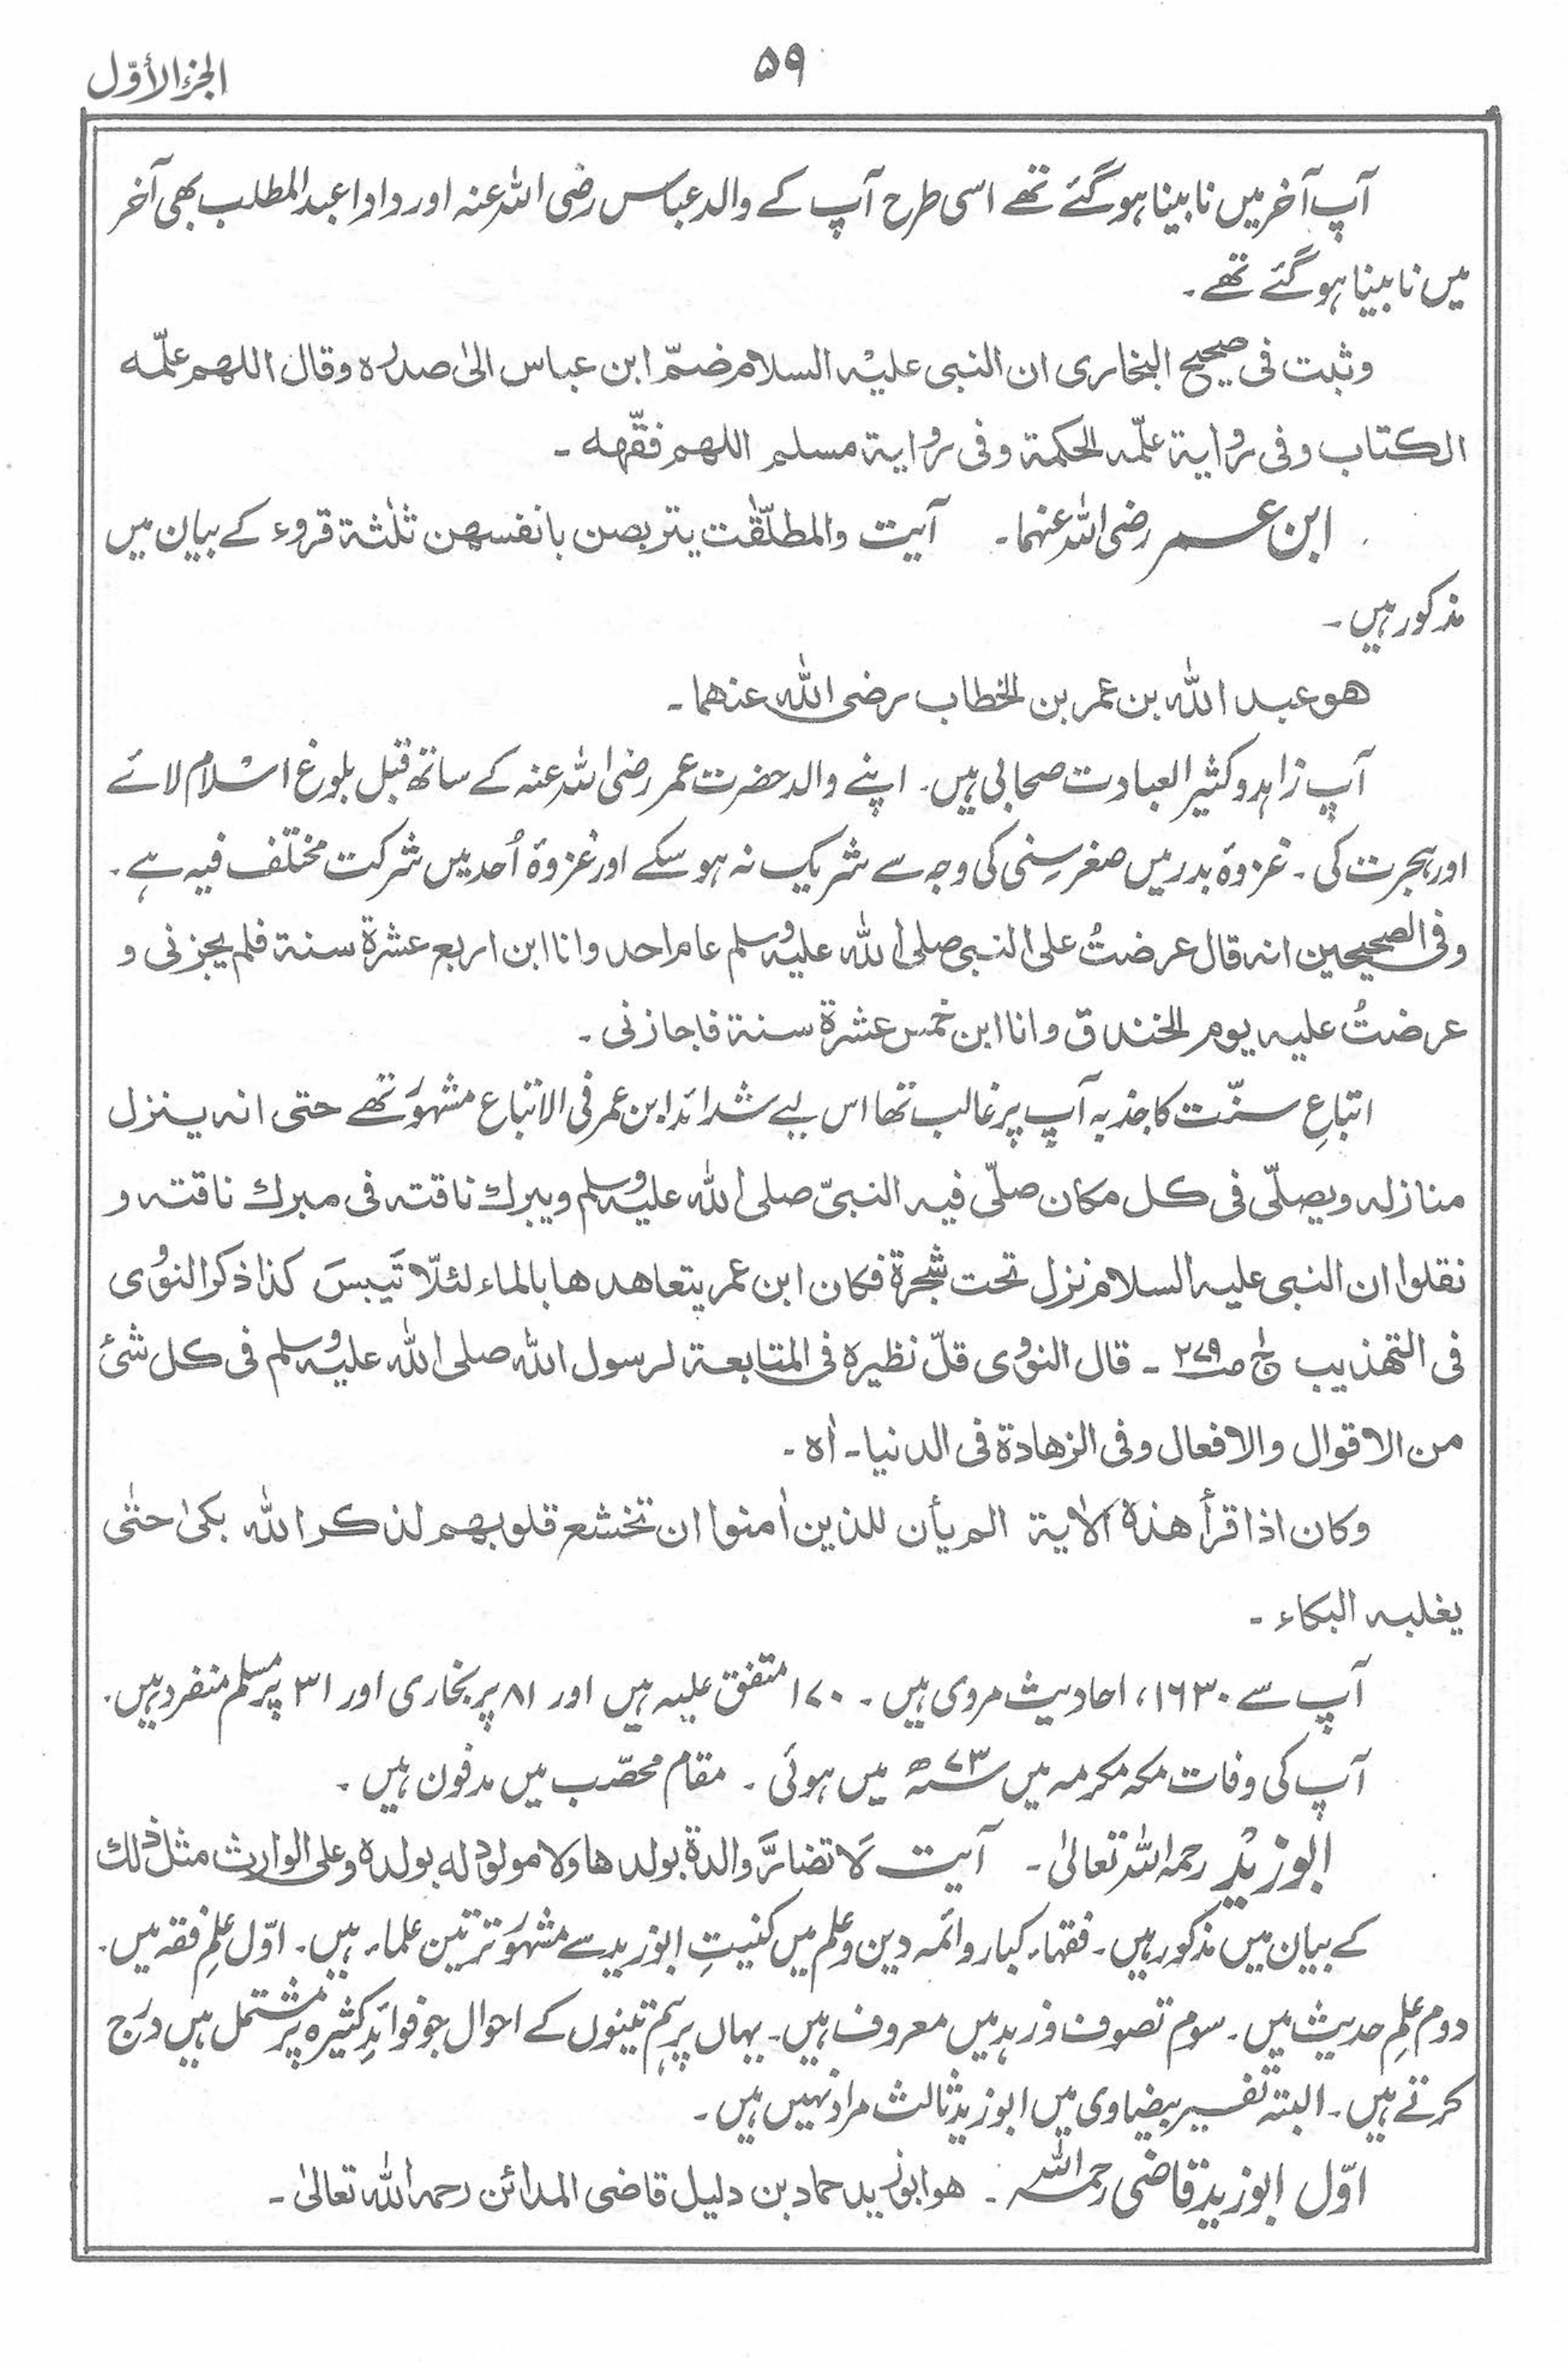 ۵۹
الجزء الأوّل
آپ آخر میں نابینا ہو گئے تھے اسی طرح آپ کے والد عباس رضی اللہ عنہ اور دادا عبد المطلب بھی آخر
میں نابینا ہو گئے تھے ۔
وثبت فی صحیح البخاری ان النبی علیہ السلام ضمّ ابن عباس الیٰ صدرہ وقال اللهم علّمه
الکتاب وفی روایة علّمہ الحکمة وفی روایة مسلم اللهم فقّهه ۔
ابن عمر رضی اللہ عنہما ۔ آیت والمطلّقٰت یتربصن بانفسهن ثلٰثة قروء کے بیان میں
مذکور ہیں ۔
هو عبد اللہ بن عمر بن الخطاب رضی اللہ عنهما ۔
آپ زاہد و کثیر العبادت صحابی ہیں ۔ اپنے والد حضرت عمر رضی اللہ عنہ کے ساتھ قبل بلوغ اسلام لائے
اور ہجرت کی ۔ غزوۂ بدر میں صغر سِنی کی وجہ سے شریک نہ ہو سکے اور غزوۂ اُحد میں شرکت مختلف فیہ ہے ۔
وفی الصحیحین انہ قال عرضتُ علی النبی صلی اللہ علیہ وسلم عام احد وانا ابن اربع عشرة سنة فلم یجزنی و
عرضتُ علیہ یوم الخندق وانا ابن خمس عشرة سنة فاجازنی ۔
اتباعِ سنّت کا جذبہ آپ پر غالب تھا اس لیے شدائد ابن عمر فی الاتباع مشہور تھے حتی انہ ینزل
منازلہ ویصلّی فی کل مکان صلّی فیہ النبیّ صلی اللہ علیہ وسلم ویبرك ناقتہ فی مبرك ناقتہ و
نقلوا ان النبی علیہ السلام نزل تحت شجرة فکان ابن عمر یتعاهدها بالماء لئلّا تَیبسَ کذا ذکر النووی
فی التهذیب ج۱ ص۲۷۹ ۔ قال النووی قلّ نظیرہ فی المتابعة لرسول اللہ صلی اللہ علیہ وسلم فی کل شئ
من الاقوال والافعال وفی الزهادة فی الدنیا ۔ اٰہ ۔
وکان اذا قرأ هذہ الاٰیة الم یأن للذین اٰمنوا ان تخشع قلوبهم لذکر اللہ بکیٰ حتٰی
یغلبہ البکاء ۔
آپ سے ۱۶۳۰، احادیث مروی ہیں ۔ ۱۷۰ متفق علیہ ہیں اور ۸۱ پر بخاری اور ۳۱ پر مسلم منفرد ہیں ۔
آپ کی وفات مکہ مکرمہ میں ۷۳ھ میں ہوئی ۔ مقام محصّب میں مدفون ہیں ۔
ابو زید رحمہ اللہ تعالیٰ ۔ آیت لَا تضارَّ والدة بولدها ولا مولود لہ بولدہ وعلی الوارث مثل ذٰلك
کے بیان میں مذکور ہیں ۔ فقہاء کبار و ائمہ دین و علم میں کنیتِ ابو زید سے مشہور تر تین علماء ہیں ۔ اوّل علمِ فقہ میں ۔
دوم علمِ حدیث میں ۔ سوم تصوف و زہد میں معروف ہیں ۔ یہاں پر ہم تینوں کے احوال جو فوائدِ کثیرہ پر مشتمل ہیں درج
کرتے ہیں ۔ البتہ تفسیر بیضاوی میں ابو زید ثالث مراد نہیں ہیں ۔
اوّل ابو زید قاضی رحمہ اللہ ۔ هو ابو زید حماد بن دلیل قاضی المدائن رحمہ اللہ تعالیٰ ۔